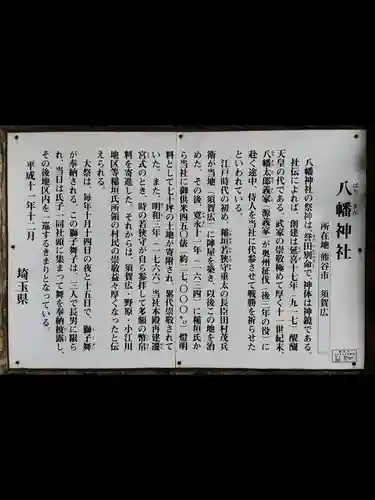 八幡神社
はち まん
所在地 熊谷市 須賀広
八幡神社の祭神は、誉田別命で、神体は神鏡である。
社伝によれば、創建は延喜十七年(九一七)醍醐
天皇の代である。武家の崇敬極めて厚く、十一世紀末、
八幡太郎義家(源義家)が奥州征伐(後三年の役)に
赴く途中、侍人を当社に代参させて戦勝を祈らせた
といわれている。
江戸時代の初め、稲垣若狭守重太の長臣田村茂兵
衛が当地(須賀広)に陣屋を築き、以後この地を治
めた。その後、寛永十一年(一六三四)に稲垣氏か
ら当社に御供米四五〇俵(約二七〇〇〇㎏)燈明
料として七十坪の土地が寄附され、累代崇敬されて
いた。また、明和三年(一七六六)当社本殿再建遷
宮式のとき、時の若狭守が自ら参拝して多額の幣帛
料を寄進した。それからは、須賀広・野原・小江川
地区等稲垣氏所領の村民の崇敬益々厚くなったと伝
えられる。
大祭は、毎年十月十四日の夜と十五日で、獅子舞
が奉納される。この獅子舞子は、三人で長男に限ら
れ、当日は氏子一同社頭に集まって舞を奉納披露し、
その後地区内を一巡するきまりとなっている。
平成十一年十二月
埼玉県